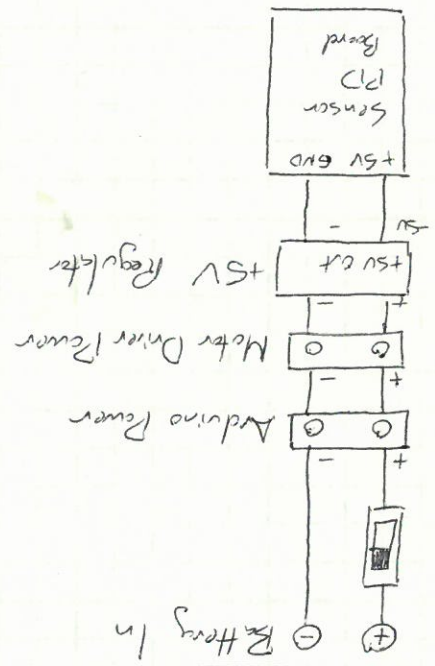 + - Battery In
+ -
Arduino Power
+ -
Motor Driver Power
+ -
+5V Out +5V Regulator
5V -
+5V GND
Sensor
PID
Board